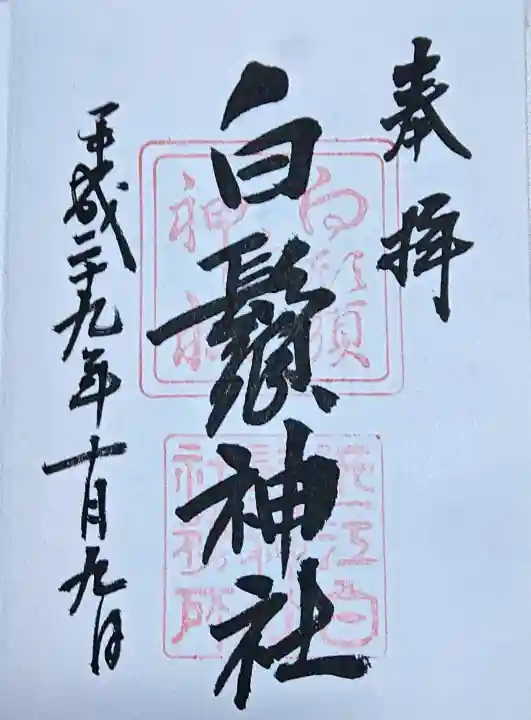 奉拝
白鬚神社
平成二十九年十月九日
白鬚
神社
近江白
社務所